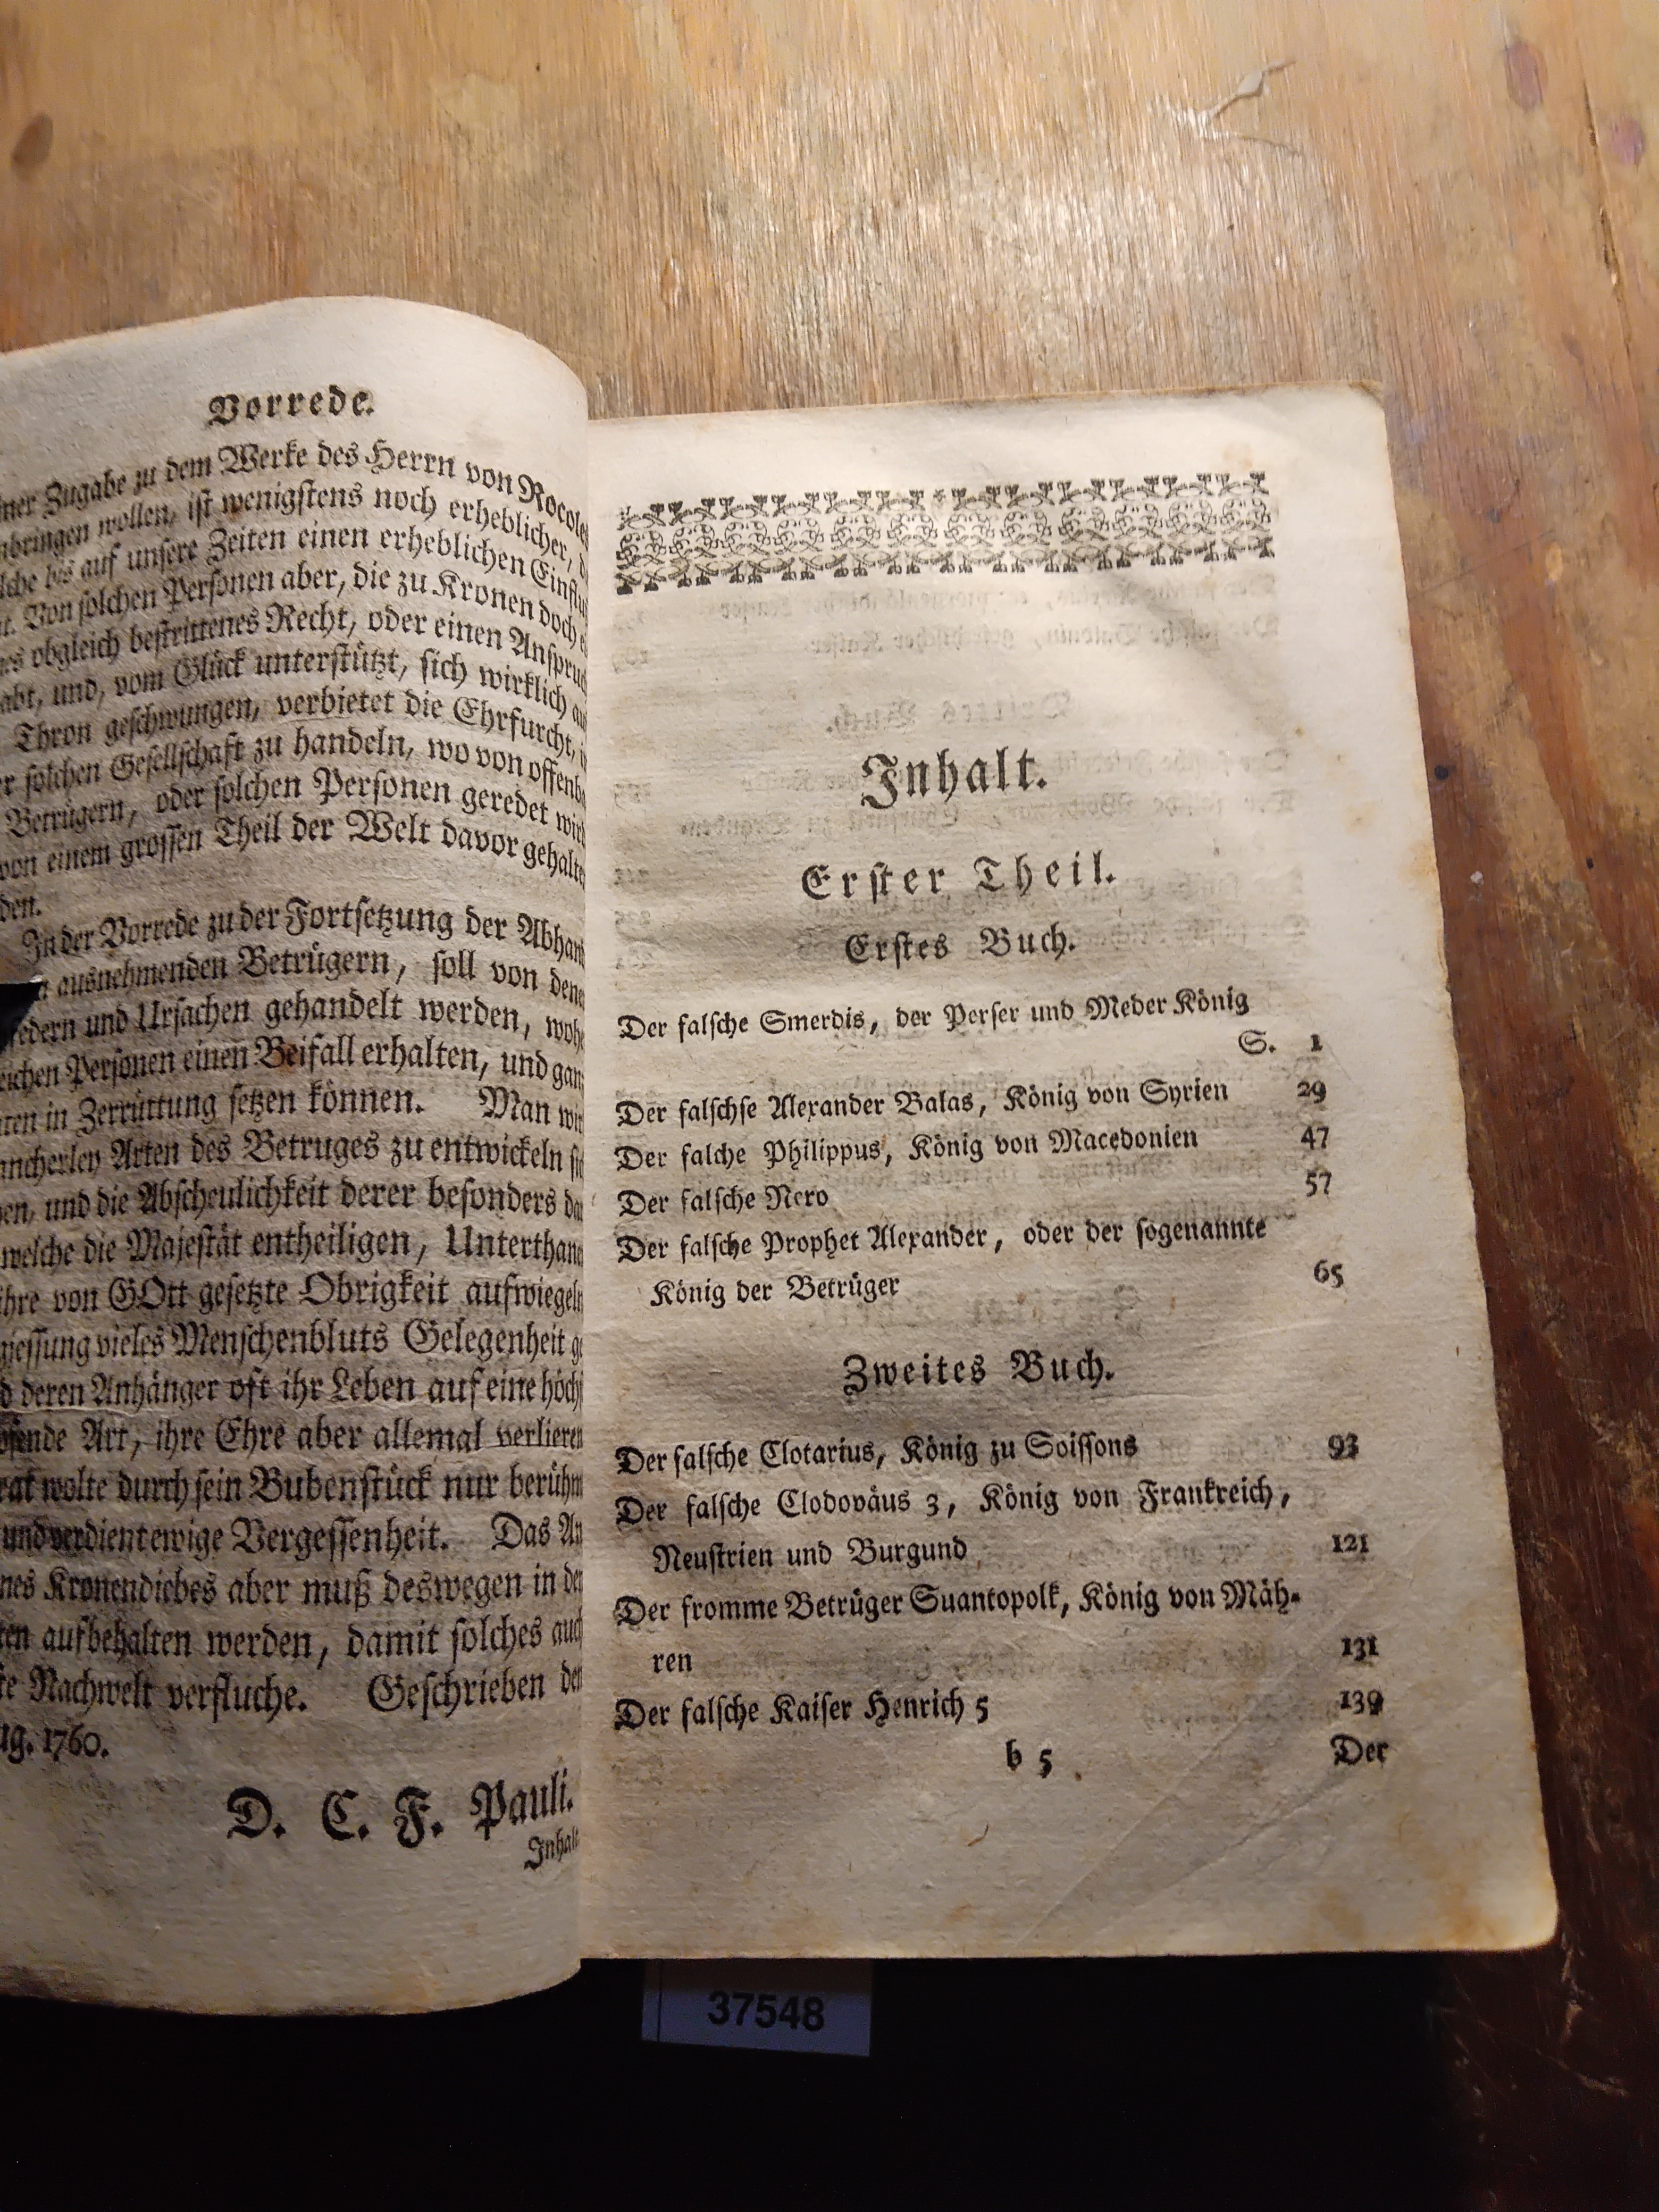 Vorrede.
Zugabe zu dem Werke des Herrn von Rocoles
wollen, ist wenigstens noch erheblicher,
bis auf unsere Zeiten einen erheblichen Einfluß
Von solchen Personen aber, die zu Kronen doch
obgleich bestrittenes Recht, oder einen Anspruch
und, vom Glück unterstützt, sich wirklich
Thron geschwungen, verbietet die Ehrfurcht,
solchen Gesellschaft zu handeln, wo von offenb
Betrügern, oder solchen Personen geredet wird
von einem grossen Theil der Welt davor gehalten
den.
In der Vorrede zu der Fortsetzung der Abhan
ausnehmenden Betrügern, soll von denen
edern und Ursachen gehandelt werden, wohe
eichen Personen einen Beifall erhalten, und gan
ten in Zerrüttung setzen können. Man wir
ancherley Arten des Betruges zu entwickeln
en, und die Abscheulichkeit derer besonders da
welche die Majestät entheiligen, Unterthane
ihre von GOtt gesetzte Obrigkeit aufwiegeln
giessung vieles Menschenbluts Gelegenheit ge
d deren Anhänger oft ihr Leben auf eine höchst
Art, ihre Ehre aber allemal verlieren
wolte durch sein Bubenstück nur berühm
und verdient ewige Vergessenheit. Das An
nes Kronendiebes aber muß deswegen in den
ten aufbehalten werden, damit solches auch
te Nachwelt verfluche. Geschrieben den
ug. 1760.
D. C. F. Pauli.
Inhalt
Inhalt.
Erster Theil.
Erstes Buch.
Der falsche Smerdis, der Perser und Meder König
S. 1
Der falschse Alexander Balas, König von Syrien 29
Der falche Philippus, König von Macedonien 47
Der falsche Nero 57
Der falsche Prophet Alexander, oder der sogenannte
König der Betrüger 65
Zweites Buch.
Der falsche Clotarius, König zu Soissons 93
Der falsche Clodoväus 3, König von Frankreich,
Neustrien und Burgund 121
Der fromme Betrüger Suantopolk, König von Mäh-
ren 131
Der falsche Kaiser Henrich 5 139
b 5 Der
37548